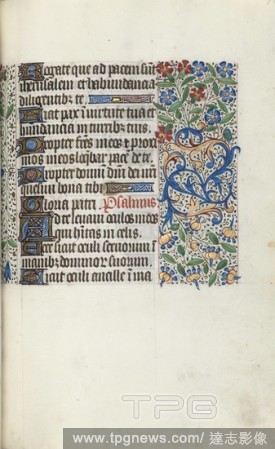 Rogate que ad pacem sūt
iherusalem et habundancia
diligentibꝫ te
Fiat pax in virtute tua et
habundancia in turribꝫ tuis
Propter frēs meos et proxi
mos meos loq̄bar pacē de te
Propter domū dn̄i dei nr̄i
quesiui bona tibi
Gloria patri Psalmus
Ad te leuaui oculos meos
qui hītas in celis
Ecce sicut oculi seruorum ī
manibꝫ dominor̄ suorum
Sicut oculi ancille ī ma
TPG
www.tpgnews.com/ 達志影像